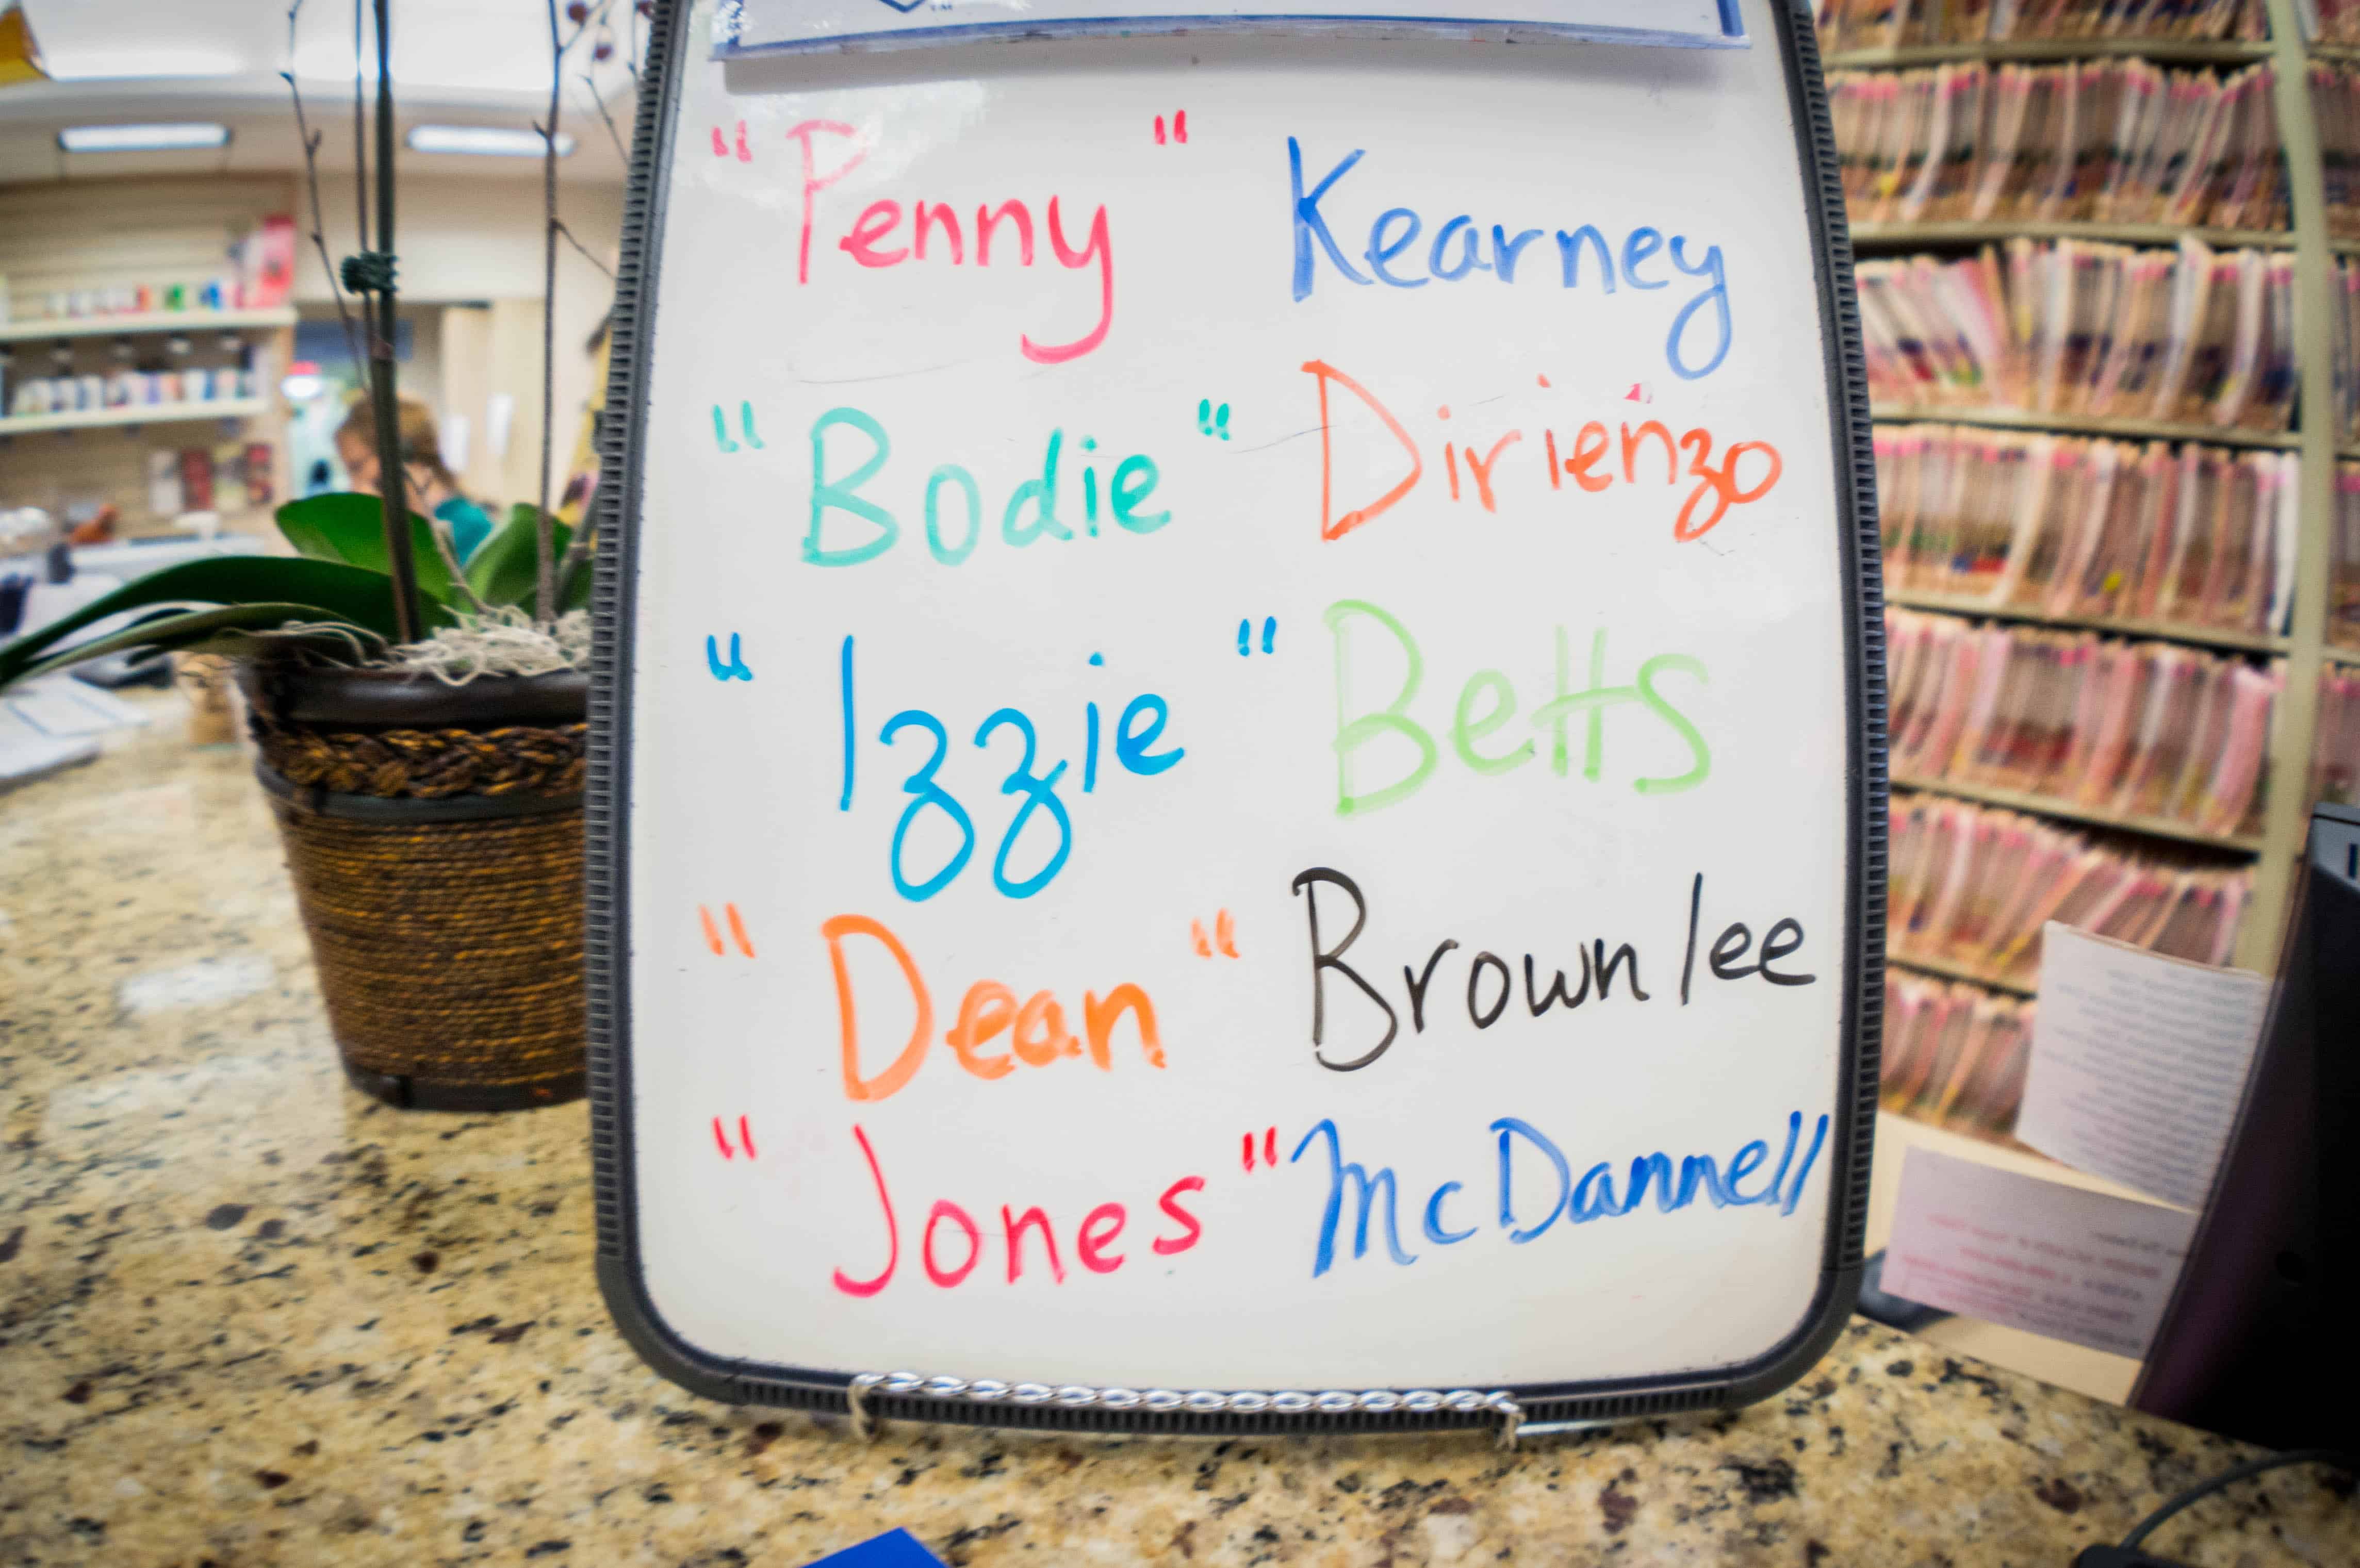 "Penny" Kearney
"Bodie" Dirienzo
"Izzie" Betts
"Dean" Brownlee
"Jones" McDannell